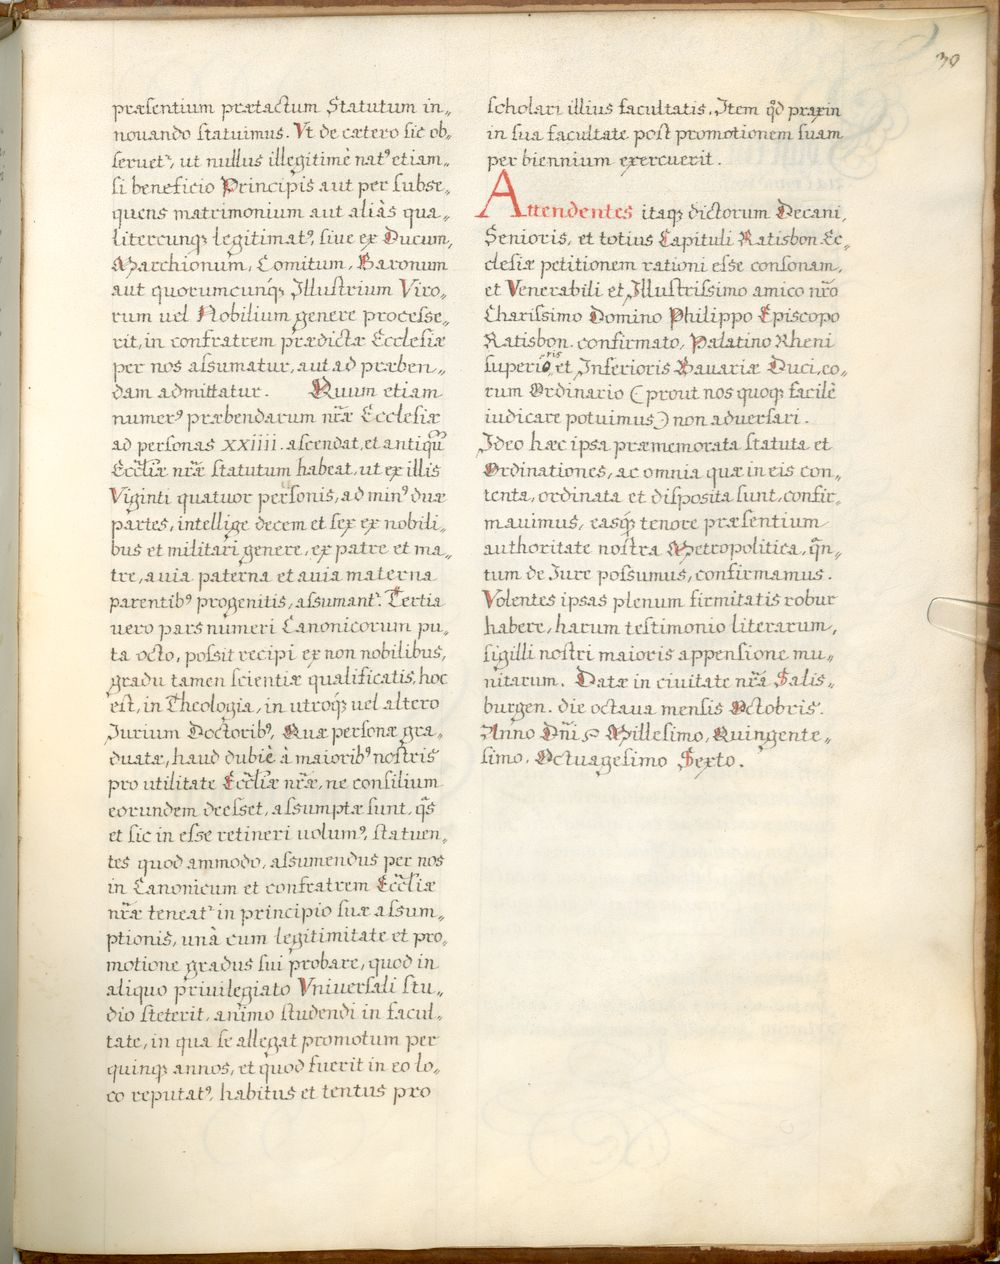 30
præsentium prætactum Statutum in„
nouando statuimus. Vt de cætero sic ob„
seruetᵣ, ut nullus illegitimè natꝰ etiam„
si beneficio Principis aut per subse„
quens matrimonium aut aliàs qua„
litercunqꝫ legitimatꝰ, siue ex Ducum,
Marchionum, Comitum, Baronum
aut quorumcunqꝫ Illustrium Viro„
rum uel Nobilium genere processe„
rit, in confratrem prædictæ Ecclesiæ
per nos assumatur, aut ad præben„
dam admittatur. Quum etiam
numerꝰ præbendarum nr̃æ Ecclesiæ
ad personas XXIIII. ascendat, et antiqũ
Eccl̃iæ nr̃æ statutum habeat, ut ex illis
Viginti quatuor personis, ad minꝰ duæ
partes, intellige decem et sex ex nobili„
bus et militari genere, ex patre et ma„
tre, auia paterna et auia materna
parentibꝰ progenitis, assumantᵣ. Tertia
uero pars numeri Canonicorum pu„
ta octo, possit recipi ex non nobilibus,
gradu tamen scientiæ qualificatis, hoc
est, in Theologia, in utroqꝫ uel altero
Jurium Doctoribꝰ, Quæ personæ gra„
duatæ, haud dubiè à maioribꝰ nostris
pro utilitate Eccl̃iæ nr̃æ, ne consilium
eorundem deesset, assumptæ sunt, q̃s
et sic in esse retineri uolumꝰ, statuen„
tes quod ammodo, assumendus per nos
in Canonicum et confratrem Eccl̃iæ
nr̃æ teneatᵣ in principio suæ assum„
ptionis, unà cum legitimitate et pro„
motione gradus sui probare, quod in
aliquo priuilegiato Vniuersali stu„
dio steterit, animo studendi in facul„
tate, in qua se allegat promotum per
quinqꝫ annos, et quod fuerit in eo lo„
co reputatꝰ, habitus et tentus pro
scholari illius facultatis. Item qd̃ praxin
in sua facultate post promotionem suam
per biennium exercuerit.
Attendentes itaqꝫ dictorum Decani,
Senioris, et totius Capituli Ratisbon Ec„
clesiæ petitionem rationi esse consonam,
et Venerabili et Illustrissimo amico nr̃o
Charissimo Domino Philippo Episcopo
Ratisbon. confirmato, Palatino Rheni
superioris et Inferioris Bauariæ Duci, eo„
rum Ordinario (prout nos quoqꝫ facilè
iudicare potuimus) non aduersari.
Ideo hæc ipsa præmemorata statuta et
Ordinationes, ac omnia quæ in eis con„
tenta, ordinata et disposita sunt, confir„
mauimus, easqꝫ tenore præsentium
authoritate nostra Metropolitica, q̃n„
tum de Jure possumus, confirmamus.
Volentes ipsas plenum firmitatis robur
habere, harum testimonio literarum,
sigilli nostri maioris appensione mu„
nitarum. Datæ in ciuitate nr̃a Salis„
burgen. die octaua mensis Octobris.
Anno Dñi Millesimo, Quingente„
simo, Octuagesimo Sexto.